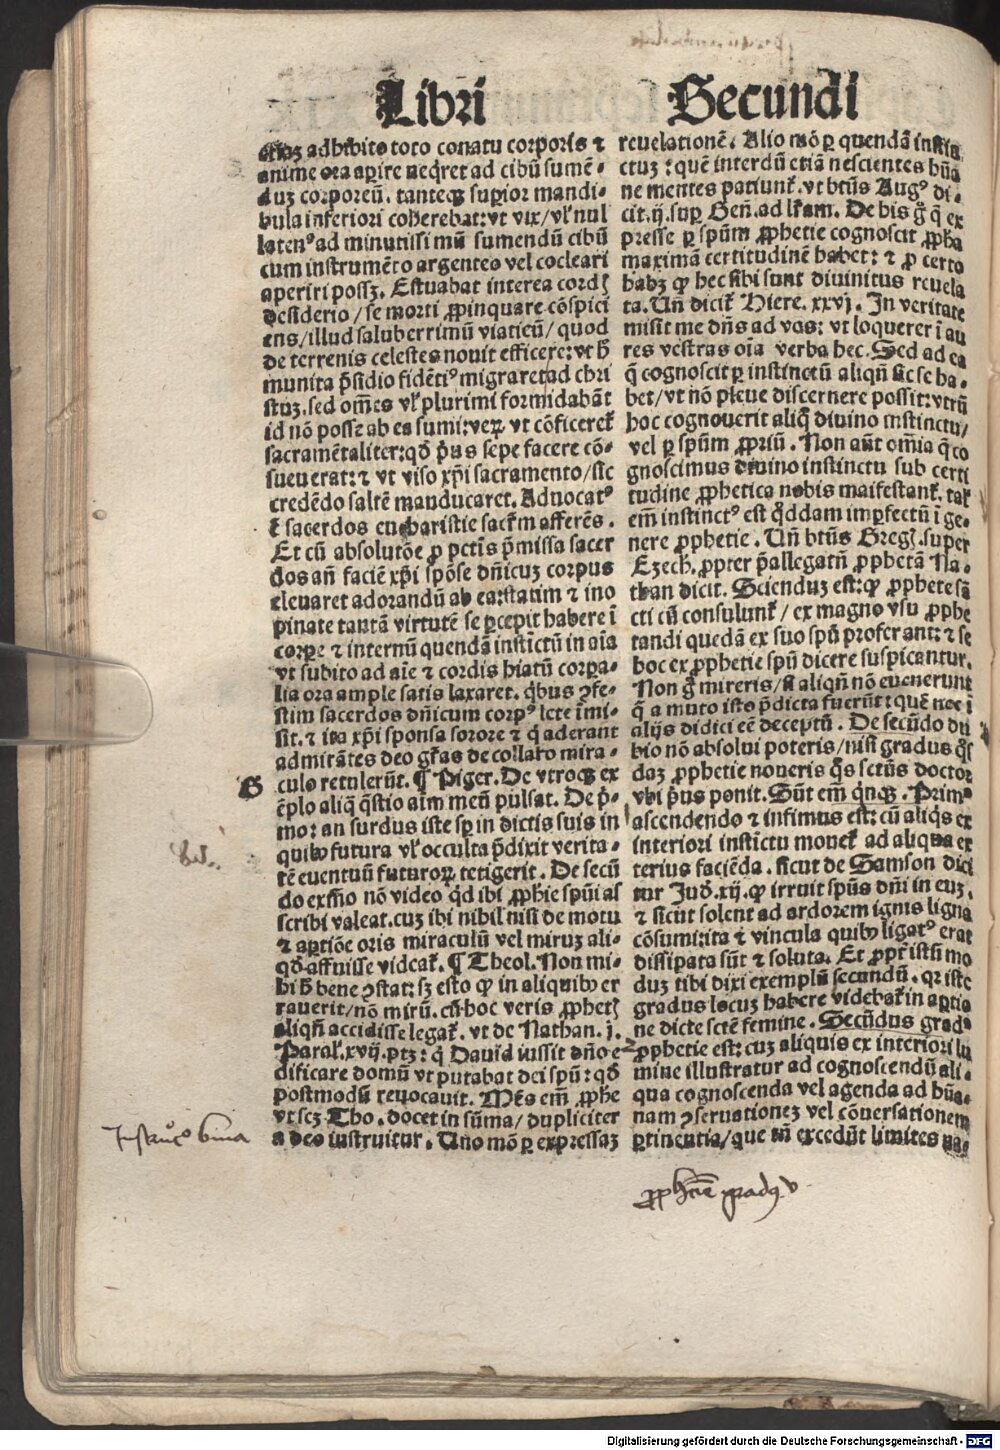 Libri Secundi
adhibito toto conatu corporis ⁊
anime ora aꝑire neq̄ret ad cibū sumē-
duȝ corporeū. tanteqȝ suꝑior mandi-
bula inferiori coherebat: vt vix / vl' nul
latenꝰ ad minutissimū sumendū cibū
cum instrumēto argenteo vel cocleari
aperiri possȝ. Estuabat interea cordꝭ
desiderio / se morti ꝓpinquare cōspici
ens / illud saluberrimū viaticū / quod
de terrenis celestes nouit efficere: vt h̄
munita p̄sidio fidētiꝰ migraret ad chri
stuȝ. sed om̄es vl' plurimi formidabāt
id nō posse ab ea sumi: veꝝ vt cōficeret̄
sacramētaliter: qd̄ p̄us sepe facere cō-
sueuerat: ⁊ vt viso xp̄i sacramento / sic
credēdo saltē manducaret. Aduocatꝰ
ē sacerdos eucharistie sacr̄m afferēs.
Et cū absolutōe ꝓ pctīs p̄missa sacer
dos añ faciē xp̄i spōse dñicuȝ corpus
eleuaret adorandū ab ea: statim ⁊ ino
pinate tantā virtutē se ꝑcepit habere ī
corꝑe ⁊ internū quendā instīctū in aīa
vt subito ad aīe ⁊ cordis hiatū corpa-
lia ora ample satis laxaret. qͥbus ꝯfe-
stim sacerdos dñicum corpꝰ lete īmi-
sit. ⁊ ita xp̄i sponsa sorore ⁊ q̄ aderant
admirātes deo gr̄as de collato mira-
culo retulerūt. ¶ Piger. De vtroqȝ ex
ēplo aliq̄ q̄stio aīm meū pulsat. De p̄-
mo: an surdus iste sꝑ in dictis suis in
quibꝰ futura vl' occulta p̄dixit verita-
tē euentuū futuroꝝ tetigerit. De secū
do exꝑ̄o nō video qd̄ ibi ꝓphīe spūi as
scribi valeat. cuȝ ibi nihil nisi de motu
⁊ aꝑtiōe oris miraculū vel miruȝ ali-
qd̄ affuisse videat̄. ¶ Theol. Non mi-
hi h̄ bene ꝯstat: sȝ esto ꝙ in aliquibꝰ er
rauerit / nō mirū. cū hoc veris ꝓphetꝭ
aliqñ accidisse legat̄. vt de Nathan. j.
Paral'. xvij. ptȝ: q̄ Dauid iussit dño e
dificare domū vt putabat dei spū: qd̄
postmodū reuocauit. Mētes em̄ ꝓphe
vt scȝ Tho. docet in sūma / dupliciter
a deo instruitur. Uno mō ꝑ expressaȝ
reuelationē. Alio mō ꝑ quendā instin
ctuȝ: quē interdū etiā nescientes hūa
ne mentes patiunt̄. vt btūs Augꝰ di-
cit. ij. suꝑ Geñ. ad lr̄am. De his g̊ q̄ ex
presse ꝑ spūm ꝓphetie cognoscit ꝓpha
maximā certitudinē habet: ⁊ ꝓ certo
habȝ ꝙ hec sibi sunt diuinitus reuela
ta. Uñ dicit̄ Hiere. xxvj. In veritate
misit me dñs ad vos: vt loquerer ī au
res vestras oīa verba hec. Sed ad ea
q̄ cognoscit ꝑ instinctū aliqñ sic se ha-
bet / vt nō plene discernere possit: vtrū
hoc cognouerit aliq̄ diuino instinctu /
vel ꝑ spūm ꝓpriū. Non aūt om̄ia q̄ co
gnoscimus diuino instinctu sub certi
tudine ꝓphetica nobis maifestant̄. tal'
em̄ instinctꝰ est qͦddam imꝑfectū ī ge-
nere ꝓphetie. Uñ btūs Gregꝭ. super
Ezech. ꝓpter p̄allegatū ꝓphetā Na-
than dicit. Scienduȝ est: ꝙ ꝓphete sā
cti cū consulunt̄ / ex magno vsu ꝓphe
tandi quedā ex suo spū proferant: ⁊ se
hoc ex ꝓphetie spū dicere suspicantur.
Non g̊ mireris / si aliqñ nō euenerunt
q̄ a muto isto p̄dicta fuerūt: quē nec ī
alijs didici eē deceptū. De secūdo du
bio nō absolui poteris / nisi gradus qͦs
daȝ ꝓphetie noueris qͦs sctūs doctor
vbi p̄us ponit. Sūt em̄ qͥnqȝ. Primꝰ
ascendendo ⁊ infimus est: cū aliqͥs ex
interiori instīctu monet̄ ad aliqua ex
terius faciēda. sicut de Samson dici
tur Jud̄. xij. ꝙ irruit spūs dñi in euȝ.
⁊ sicut solent ad ardorem ignis ligna
cōsumi: ita ⁊ vincula quibꝰ ligatꝰ erat
dissipata sūt ⁊ soluta. Et ꝓpt̄ istū mo
duȝ tibi dixi exemplū secundū. qꝛ iste
gradus locuȝ habere videbat̄ in aꝑtio
ne dicte sctē femine. Secūdus gradꝰ
ꝓphetie est: cuȝ aliquis ex interiori lu
mine illustratur ad cognoscendū ali-
qua cognoscenda vel agenda ad hūa-
nam ꝯseruationeȝ vel cōuersationem
ꝑtinentia / que tñ excedūt limites na-
G
ꝓphetie gradꝰ v
Digitalisierung gefördert durch die Deutsche Forschungsgemeinschaft - DFG